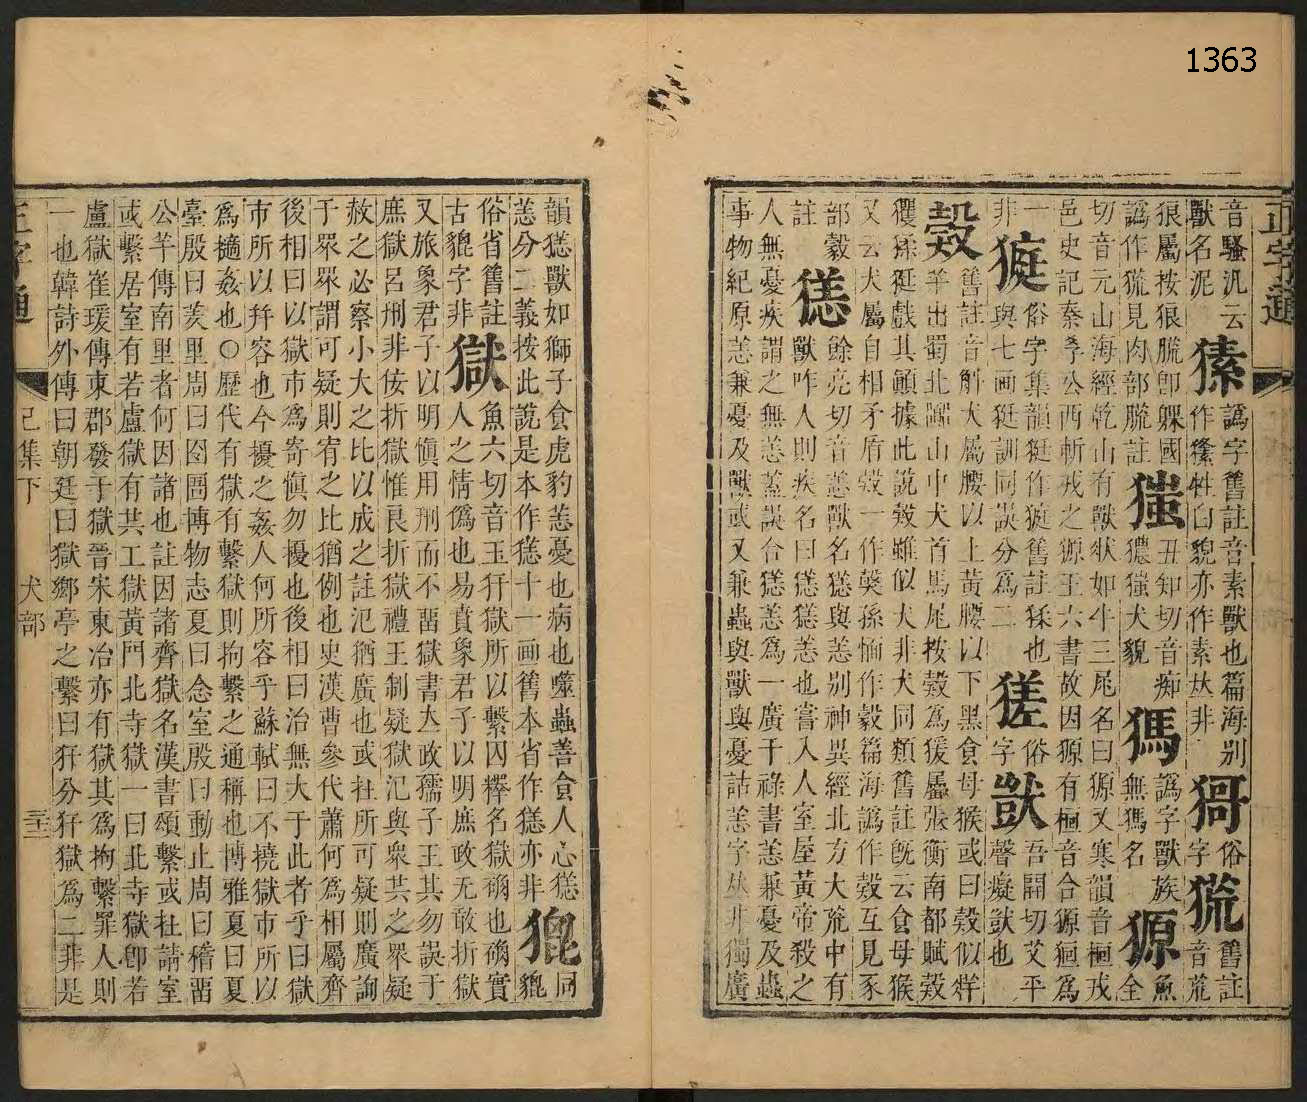 1363
正字通
音騷汎云
獸名泥
獉
譌字舊註音素獸也篇海别
作㺏牲白貌亦作素𠀤非
㺊
俗字
㡃
舊註音荒
狼屬按狼䏆卽躶國
譌作㡃見肉部䏆註
㺈
丑知切音痴
獽㺈犬貌
獁
譌字獸族
無獁名
獂
魚全
切音元山海經乾山有獸狀如牛三尾名曰獂又寒韻音桓戎
邑史記秦孝公西斬戎之獂王六書故因獂有桓音合獂狟爲
一非
㹶
俗字集韻㹶作㹶舊註猱也
與七画㹶訓同誤分爲二
㺉
俗字
獃
吾開切艾平
聲癡獃也
㺉
舊註音斛犬屬腰以上黃腰以下黑食母猴或曰㺉似牂
羊出蜀北嚻山中犬首馬尾按㺉爲猨屬張衡南都賦㺉
玃猱㹶戲其顚據此說㺉雖似犬非犬同類舊註旣云食母猴
又云犬屬自相矛盾㺉一作獒孫愐作㺉篇海譌作㺉互見豕
部豰註
㺊
餘亮切音恙獸名㺊與恙别神異經北方大荒中有
獸咋人則疾名曰㺊㺊恙也嘗入人室屋黃帝殺之
人無憂疾謂之無恙葢誤合㺊恙爲一廣干祿書恙兼憂及蟲
事物紀原恙兼憂及獸或又兼蟲與獸與憂詁恙字𠀤非獨廣
韻㺊獸如獅子食虎豹恙憂也病也噬蟲善食人心㺊
恙分二義按此說是本作㺊十一画舊本省作㺊亦非
㹸
同貌
俗省舊註
古貔字非
獄
魚六切音玉犴獄所以繫囚釋名獄确也确實
人之情僞也易賁象君子以明庶政无敢折獄
又旅象君子以明愼用刑而不畱獄書立政孺子王其勿誤于
庶獄呂刑非佞折獄惟良折獄禮王制疑獄汜與衆共之衆疑
赦之必察小大之比以成之註汜猶廣也或㧣所可疑則廣詢
于衆衆謂可疑則宥之比猶例也史漢曹參代蕭何爲相屬齊
後相曰以獄市爲寄愼勿擾也後相曰治無大于此者乎曰獄
市所以幷容也今擾之姦人何所容乎蘇軾曰不撓獄市所以
爲擿姦也○歷代有獄有繫獄則拘繫之通稱也博雅夏曰夏
臺殷曰羑里周曰囹圄博物志夏曰念室殷曰動止周曰稽畱
公羊傳南里者何因諸也註因諸齊獄名漢書頌繫或㧣請室
或繫居室有若盧獄有共工獄黃門北寺獄一曰北寺獄卽若
盧獄崔瑗傳東郡發于獄晉宋東冶亦有獄其爲拘繫罪人則
一也韓詩外傳曰朝廷曰獄鄉亭之繫曰犴分犴獄爲二非是
正字通
巳集下
犬部
三十二